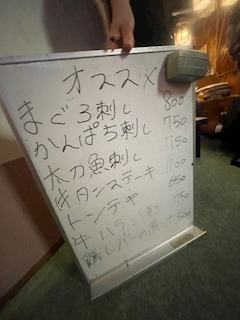 オススメ
まぐろ刺し 800
かんぱち刺し 750
太刀魚刺し 750
牛タンステーキ 1100
トンテキ 650
牛ハラミ 750
鶏レバー 500